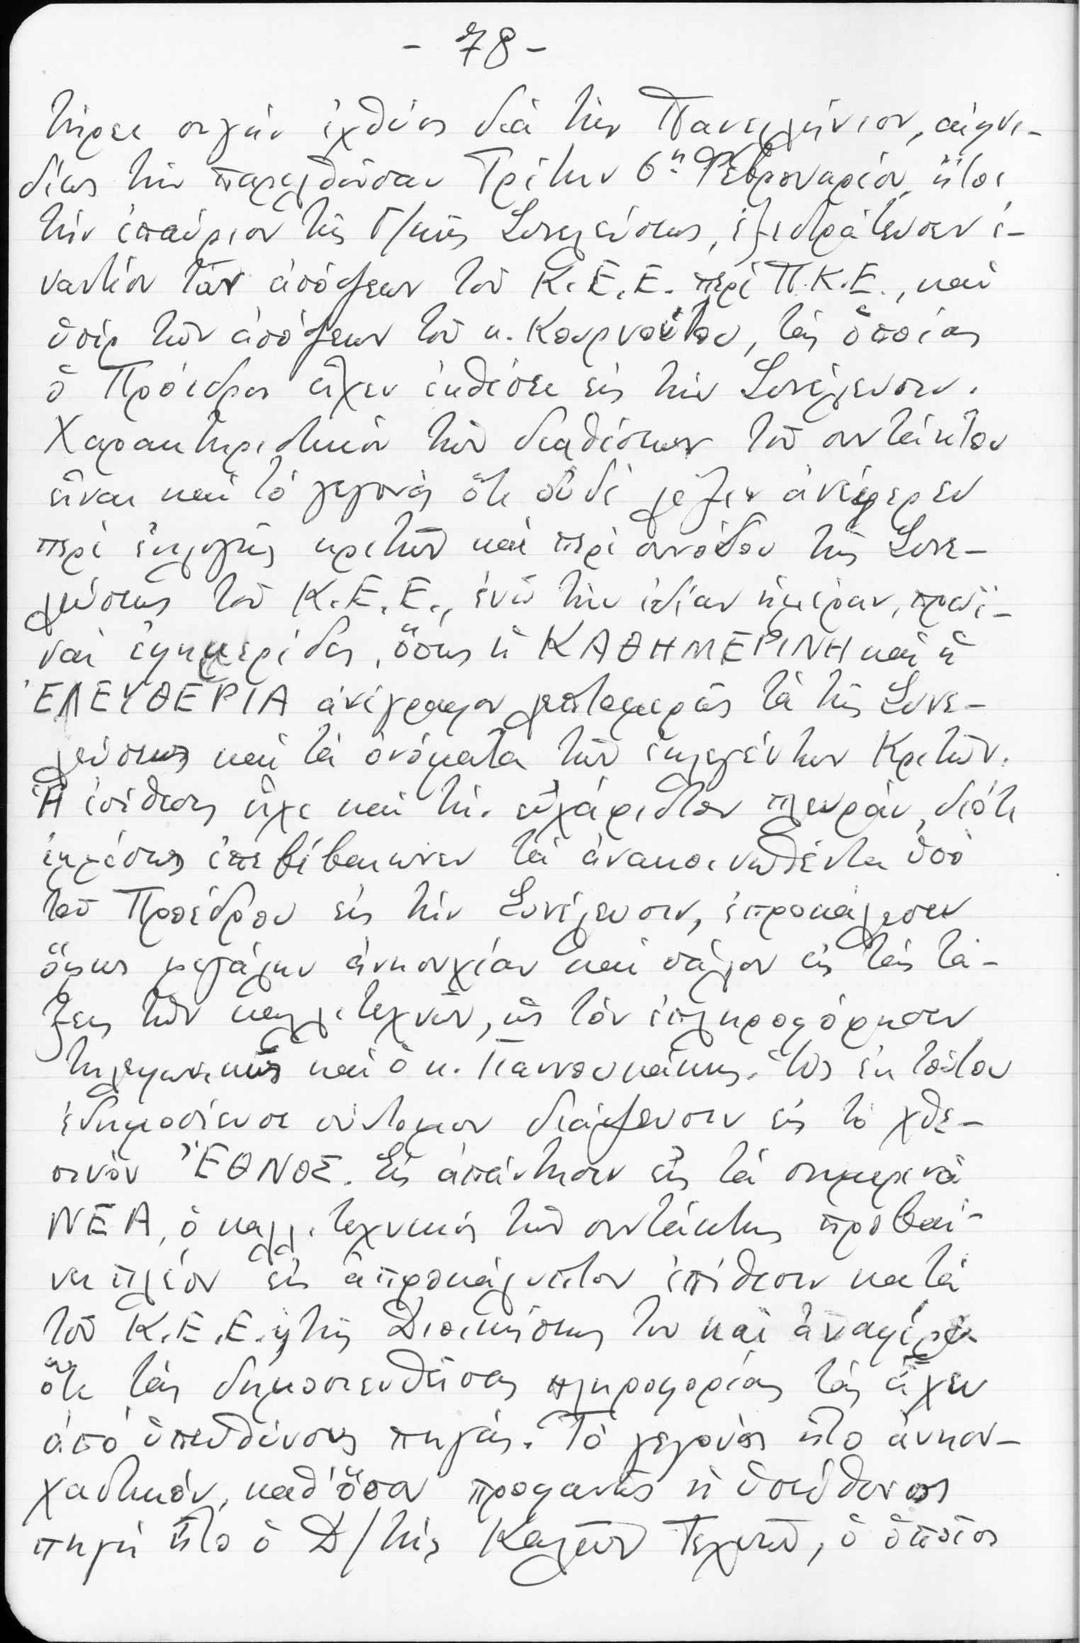 - 78 -
τήρει σιγὴν ἰχθύος διὰ τὴν Πανελλήνιον, αἰφνι-
δίως τὴν παρελθοῦσαν Τρίτην 6ην Φεβρουαρίου, ἤτοι
τὴν ἐπαύριον τῆς Γ/κῆς Συνελεύσεως, ἐξεστράτευσεν ἐ-
ναντίον τῶν ἀπόψεων τοῦ Κ.Ε.Ε. περὶ Π.Κ.Ε., καὶ
ὑπὲρ τῶν ἀπόψεων τοῦ κ. Κουρνούτου, τὰς ὁποίας
ὁ Πρόεδρος εἶχεν ἐκθέσει εἰς τὴν Συνέλευσιν.
Χαρακτηριστικὸν τῶν διαθέσεων τοῦ συντάκτου
εἶναι καὶ τὸ γεγονὸς ὅτι οὐδὲ λέξιν ἀνέφερεν
περὶ ἐκλογῆς κριτῶν καὶ περὶ συνόδου τῆς Συνε-
λεύσεως τοῦ Κ.Ε.Ε., ἐνῶ τὴν ἰδίαν ἡμέραν, πρωϊ-
ναὶ ἐφημερίδες, ὅπως ἡ ΚΑΘΗΜΕΡΙΝΗ καὶ ἡ
ἘΛΕΥΘΕΡΙΑ ἀνέγραφον λεπτομερῶς τὰ τῆς Συνε-
λεύσεως καὶ τὰ ὀνόματα τῶν ἐκλεγέντων Κριτῶν.
Ἡ ἐπίθεσις εἶχε καὶ τὴν εὐχάριστον πλευράν, διότι
ἐμμέσως ἐπεβεβαίωνεν τὰ ἀνακοινωθέντα ὑπὸ
τοῦ Προέδρου εἰς τὴν Συνέλευσιν, ἐπροκάλεσεν
ὅμως μεγάλην ἀνησυχίαν καὶ σάλον εἰς τὰς τά-
ξεις τῶν καλλιτεχνῶν, ὡς τὸν ἐπληροφόρησεν
τηλεφωνικῶς καὶ ὁ κ. Γιαννουκάκης. Ὡς ἐκ τούτου
ἐδημοσίευσε σύντομον διάψευσιν εἰς τὸ χθε-
σινὸν ἜΘΝΟΣ. Εἰς ἀπάντησιν εἰς τὰ σημερινὰ
ΝΕΑ, ὁ καλλιτεχνικός των συντάκτης προβαί-
νει πλέον εἰς ἀπροκάλυπτον ἐπίθεσιν κατὰ
τοῦ Κ.Ε.Ε. τῆς Διοικήσεώς του καὶ ἀναφέρει
ὅτι τὰς δημοσιευθείσας πληροφορίας τὰς εἶχεν
ἀπὸ ὑπευθύνους πηγάς. Τὸ γεγονὸς ἦτο ἀνησυ-
χαστικόν, καθ' ὅσον προφανῶς ἡ ὑπεύθυνος
πηγὴ ἦτο ὁ Δ/τὴς Καλῶν Τεχνῶν, ὁ ὁποῖος